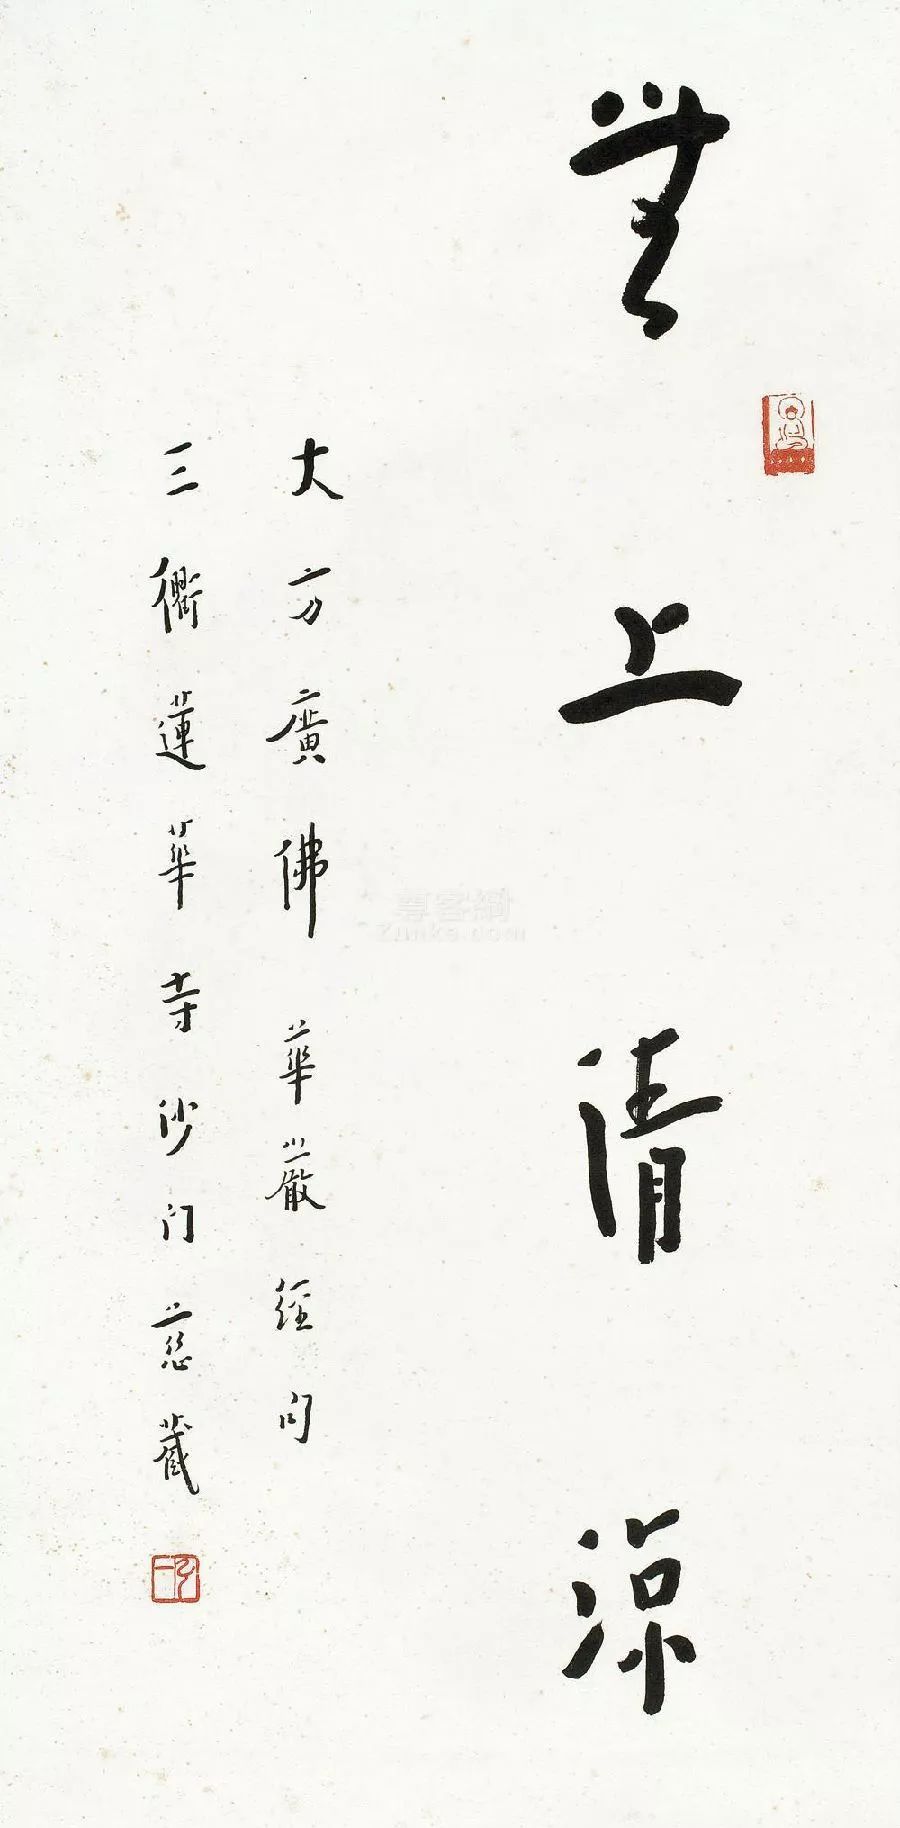 無上清涼
大方廣佛華嚴經句
三衢蓮華寺沙门慈藏
弘一
尊客網
Zunke.com